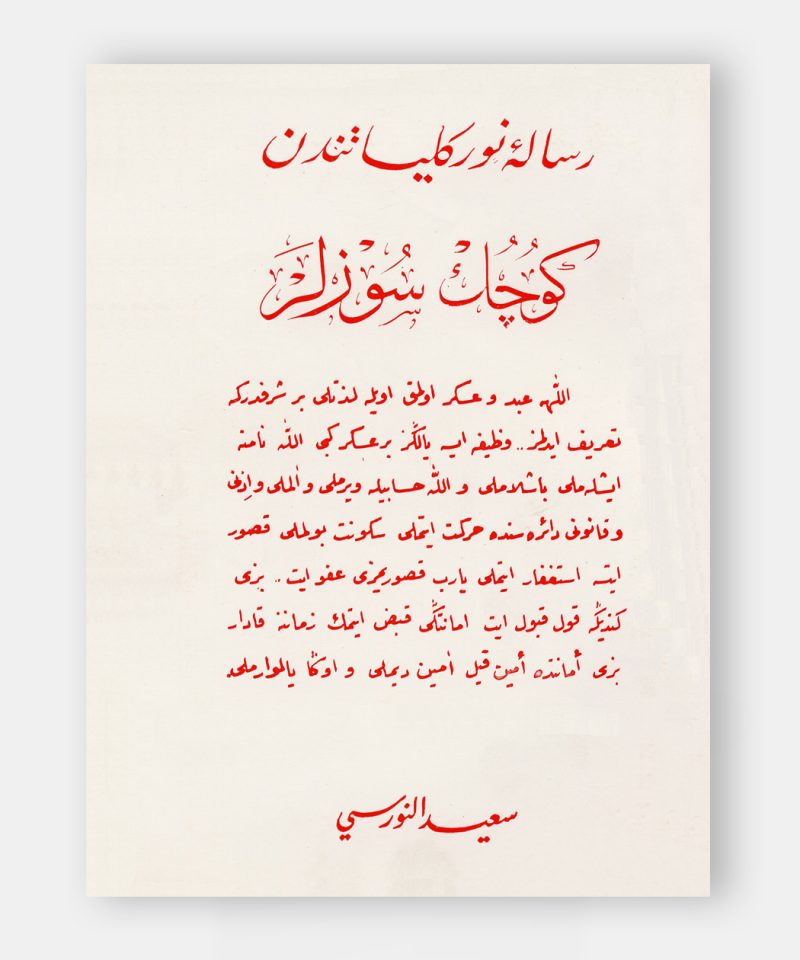 رسالۀ نور كلياتندن
كُوچُك سُوْزلَر
اللّٰهه عبد و عسكر اولمق اويله لذتلى بر شرفدركه
تعريف ايدلمز.. وظيفه ايسه يالڭز بر عسكر كبى اللّٰه نامنه
ايشله ملى باشلاملى و اللّٰه حسابيله ويرملى و اَلملى و اِذنى
و قانونى دائره سنده حركت ايتملى سكونت بولملى قصور
ايتسه استغفار ايتملى يارب قصوريمزى عفو ايت .. بزى
كنديڭه قول قبول ايت امانتڭى قبض ايتمك زماننه قادار
بزى أمانتده أمين قيل اٰمين ديملى و اوڭا يالوارملىدر
سعيد النورسي